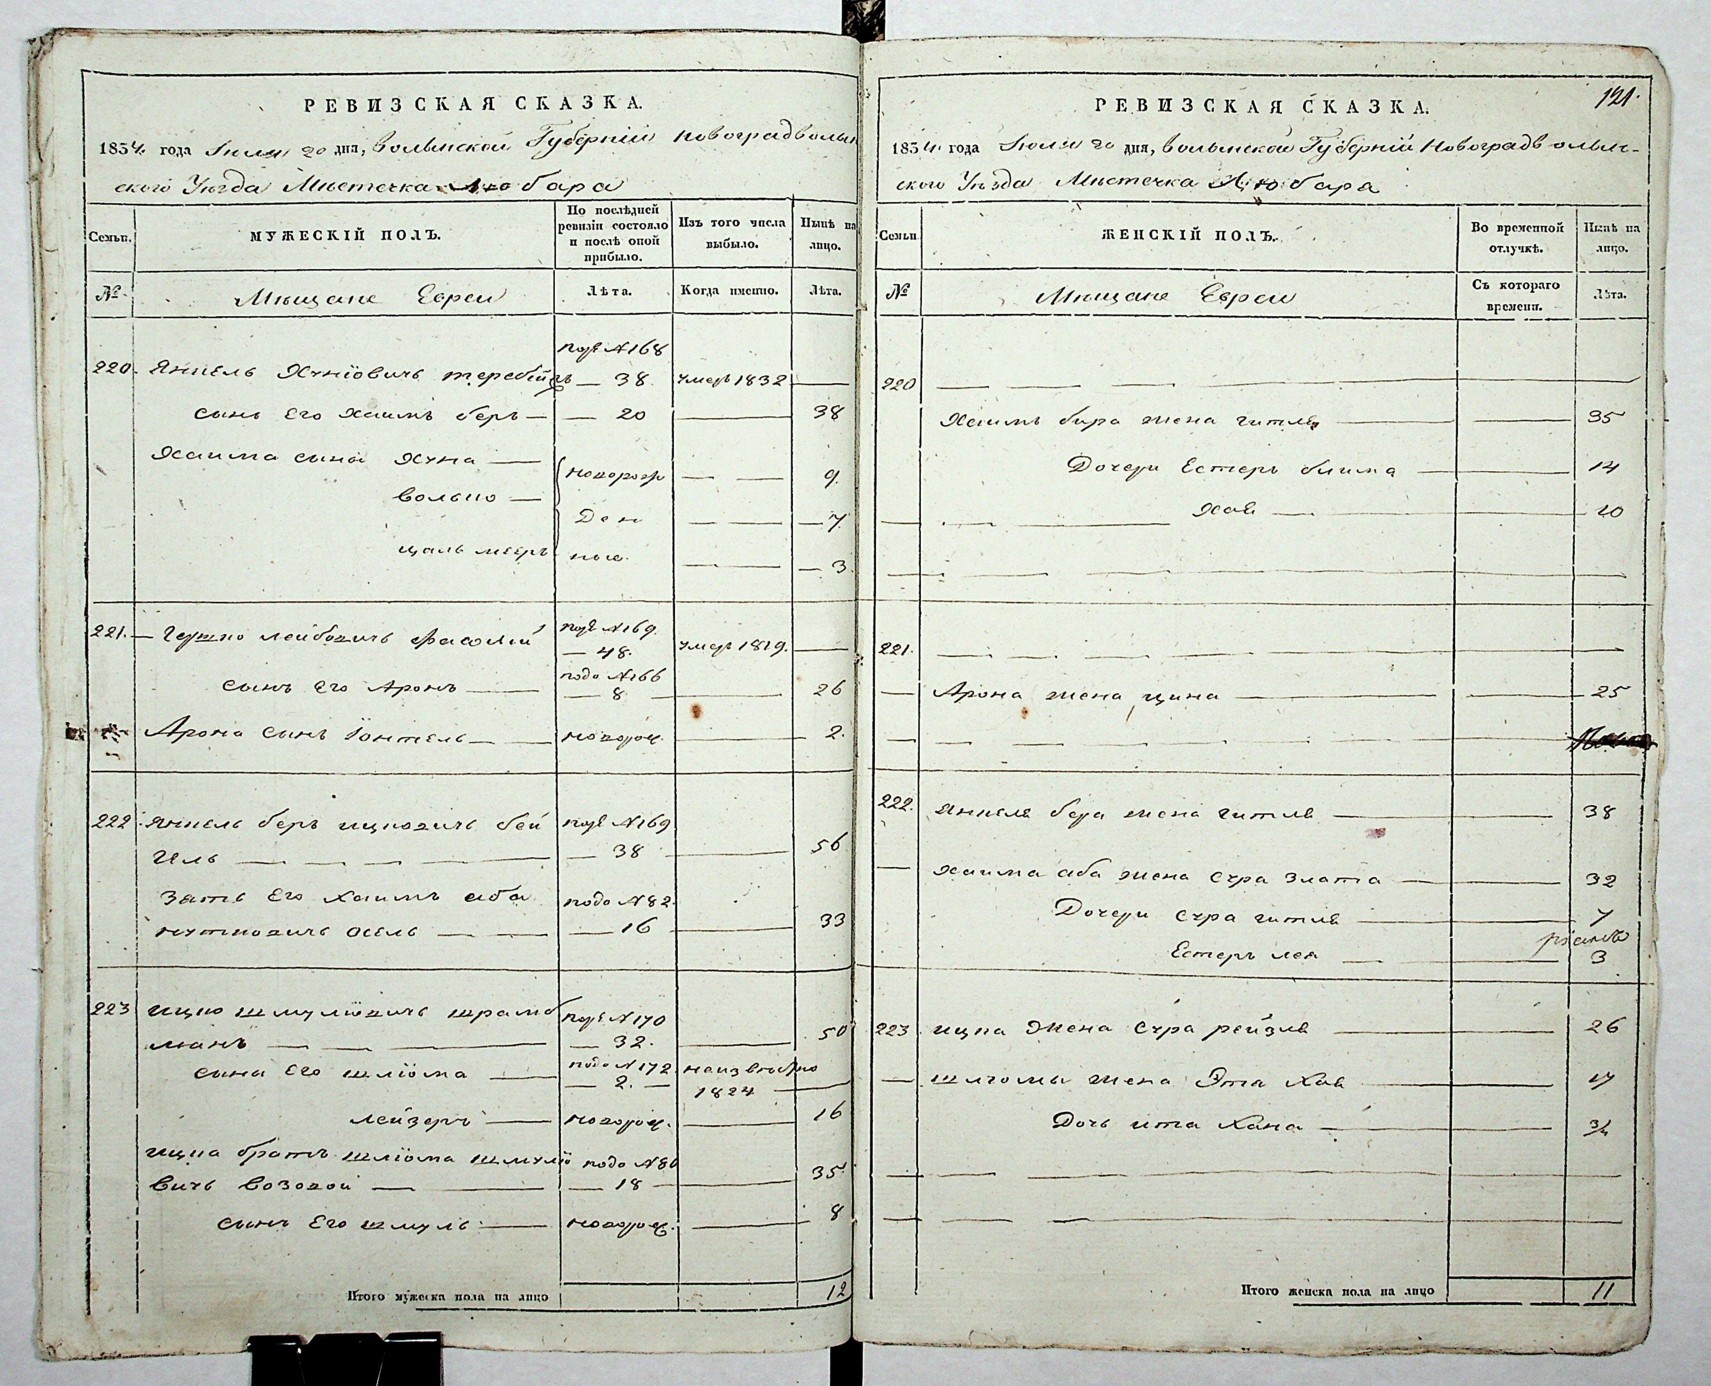 РЕВИЗСКАЯ СКАЗКА.
1834. года Іюля 20 дня, Волынской Губерніи Новоградволын
ского Уѣзда Мѣстечка Любара
Семьи.
МУЖЕСКІЙ ПОЛЪ.
По послѣдней ревизіи состояло и послѣ оной прибыло.
Изъ того числа выбыло.
Нынѣ на лицо.
№
Мѣщане Евреи
Лѣта.
Когда именно.
Лѣта.
220. Янкель Хунiовичъ — 38. умеръ 1832 —
под № 168
сынъ его Хаимъ беръ — — 20 — 38
Хаима сыны Хуна — новорож 9.
Волько — ден — 7.
мееръ ные — 3.
221. — лейбовичъ — 48. умеръ 1819. —
под № 169.
сынъ его Аронъ — — 8 — 26
подо № 166
Арона сынъ Іонтель — новорож. — 2.
222 Янкель беръ ицковичъ бей под № 169
гель — — 38 — 56
Зять его Хаимъ аба подо № 82.
нутковичъ — — 16 — 33
223 ицко шмулiовичъ под № 170
манъ — — 32. — 50
сыны его шлiома — подо № 172 — 2. — неизвѣстно 1824 —
лейзеръ — новорож. — 16
ицка братъ шлiома шмулiо подо № 80
вичъ — 18 — 35
сынъ его шмуль — новорож. — 8
Итого мужеска пола на лицо 12
121.
РЕВИЗСКАЯ СКАЗКА.
1834. года Іюля 20 дня, Волынской Губерніи Новоградволын-
ского Уѣзда Мѣстечка Любара
Семьи
ЖЕНСКІЙ ПОЛЪ.
Во временной отлучкѣ.
Нынѣ на лицо.
№
Мѣщане Евреи
Съ котораго времени.
Лѣта.
220 —
Хаимъ бера жена гитля — 35
Дочери Естеръ блима — 14
Хая — 10
221. —
— Арона жена цина — 25
222. Янкеля бера жена гитля — 38
— Хаима аба жена сура злата — 32
Дочери сура гитля — 7
Естеръ лея — 3
223 ицка жена сура рейзля — 26
— шлiомы жена Эта Хая — 17
Дочь ита Хана — 3/4
Итого женска пола на лицо 11